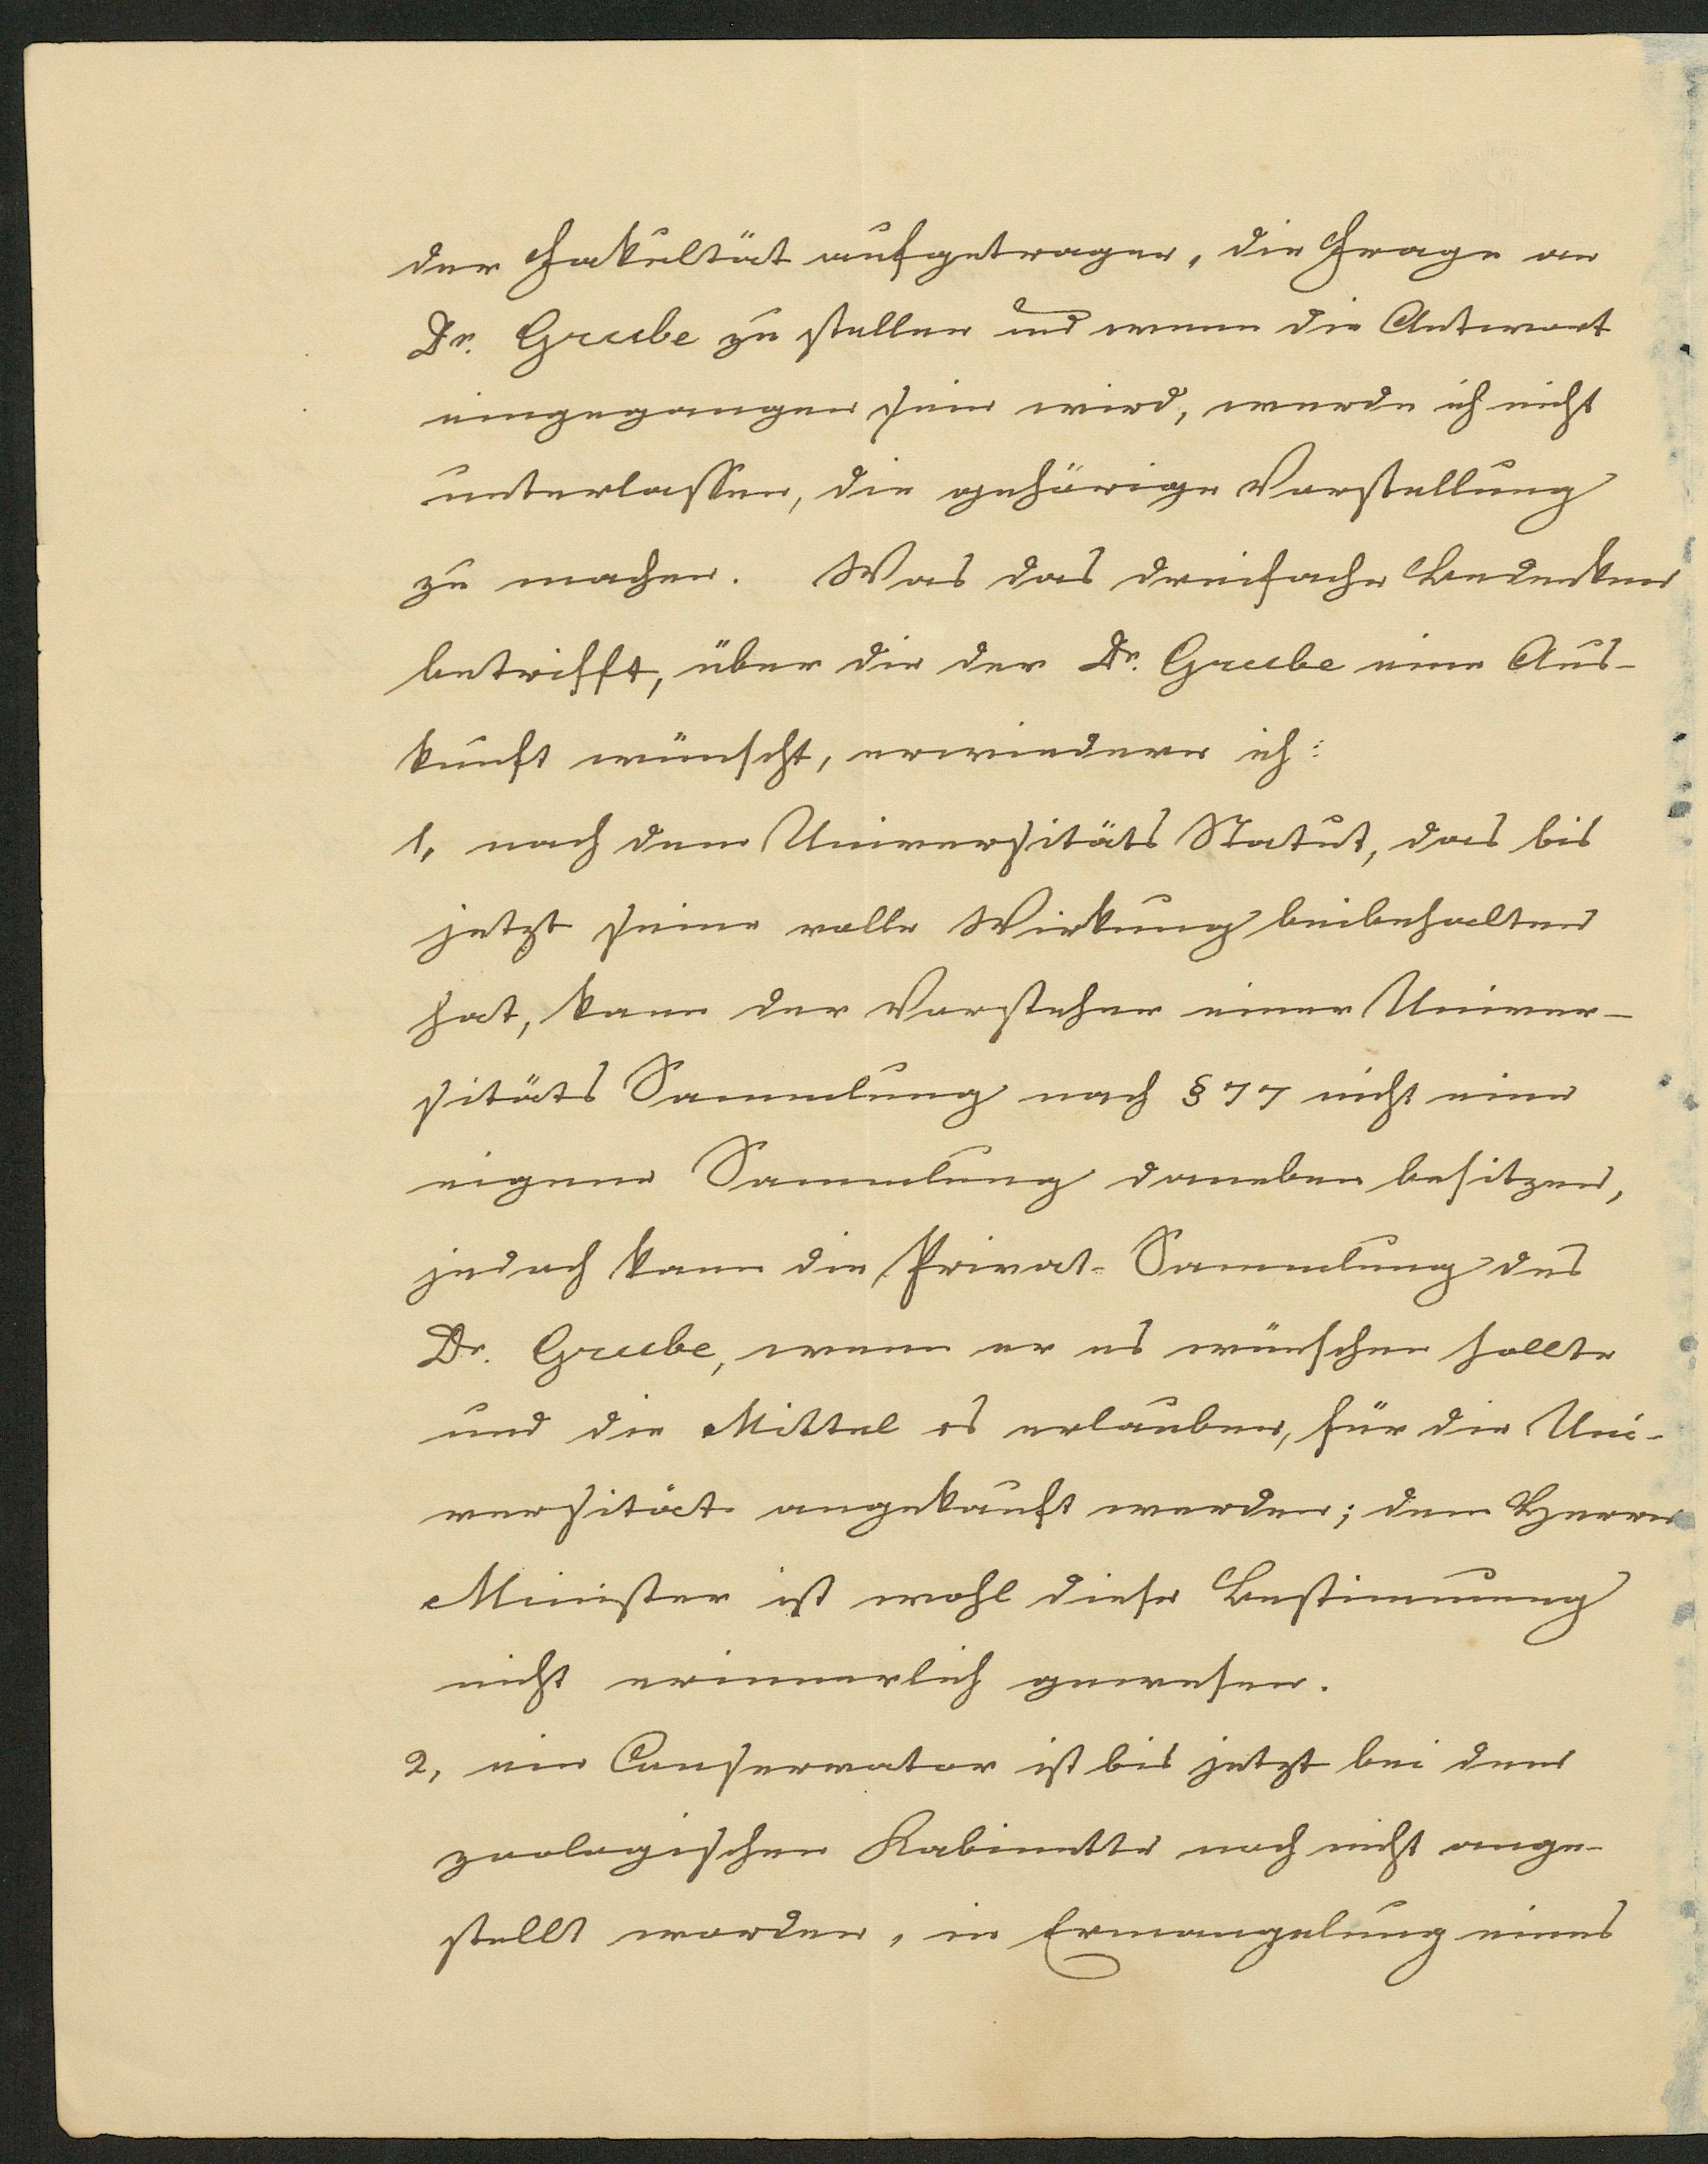 der Fakultät aufgetragen, die Frage an
Dr. Grube zu stellen und wenn die Antwort
eingegangen sein wird, werde ich nicht
unterlassen, die gehörige Vorstellung
zu machen. Was das dreifache Bedenken
betrifft, über die der Dr. Grube eine Aus-
kunft wünscht, erwiedere ich:
1, nach dem Universitäts Statut, das bis
jetzt seine volle Wirkung beibehalten
hat, kann der Vorsteher einer Univer-
sitäts Sammlung nach § 77 nicht eine
eigene Sammlung daneben besitzen,
jedoch kann die Privat-Sammlung des
Dr. Grube, wenn er es wünschen sollte
und die Mittel es erlauben, für die Uni-
versität angekauft werden; dem Herrn
Minister ist wohl diese Bestimmung
nicht erinnerlich gewesen.
2, ein Conservator ist bis jetzt bei dem
zoologischen Kabinette noch nicht ange-
stellt worden, in Ermangelung eines